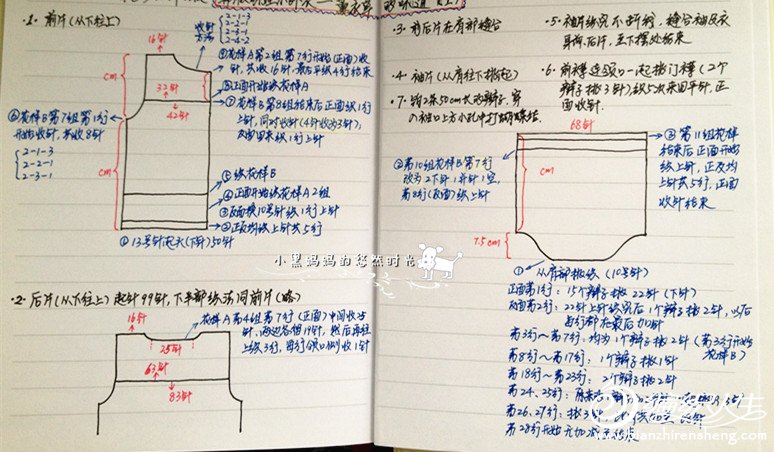 ·1. 前片(从下往上)
收针
方法
2-1-3
2-2-1
2-3-1
2-4-2
16针
cm
32针
42针
cm
⑧花样A第2组第7行开始(正面)收
针,共收16针,最后平织4行结束
⑦花样B第8组结束后正面织1行
上针,同时收针(4针收为3针);
反面用来织1行上针
⑥花样B第7组第1行
开始收针,共收8针
2-1-3
2-2-1
2-3-1
⑤织花样B
④正面开始织花样A2组
③反面换10号针织1行上针
②正反均织上针共5行
①13号针起衣(下针)50针
·2. 后片(从下往上)起针99针,下半部织法同前片(略)
16针
25针
63针
83针
花样A第4组第7行(正面)中间收25
针,两边各留19针,然后再往
上织3行,每行领口侧收1针
·3. 前后片在肩部缝合
·4. 袖片(从肩往下挑起)
·5. 袖片织完不断线,缝合袖及衣
身前后片,至下摆处结束
·6. 前襟连领口一起挑门襟(2个
辫子挑3针)织5次来回平针,正
面收针.
68针
cm
7.5cm
③第11组花样
结束后正面开始
织上针,正反均
上针共5行,正面
收针结束
②第10组花样B第7行
改为2下针1并针1空,
第8行(反面)织上针
小黑妈妈的悠然时光
①从肩部挑织(10号针)
正面第1行:15个辫子挑22针(下针)
反面第2行:22针上针织完后1个辫子挑2针,以后
每行都在最后加针
第3行~第7行:均为1个辫子挑2针(第3行开始
花样B)
第8行~第17行:1个辫子挑1针
第18行~第23行:2个辫子挑2针
第24、25行:
第26、27行:挑3
第28行开始无加减
www.bianzhirensheng.com